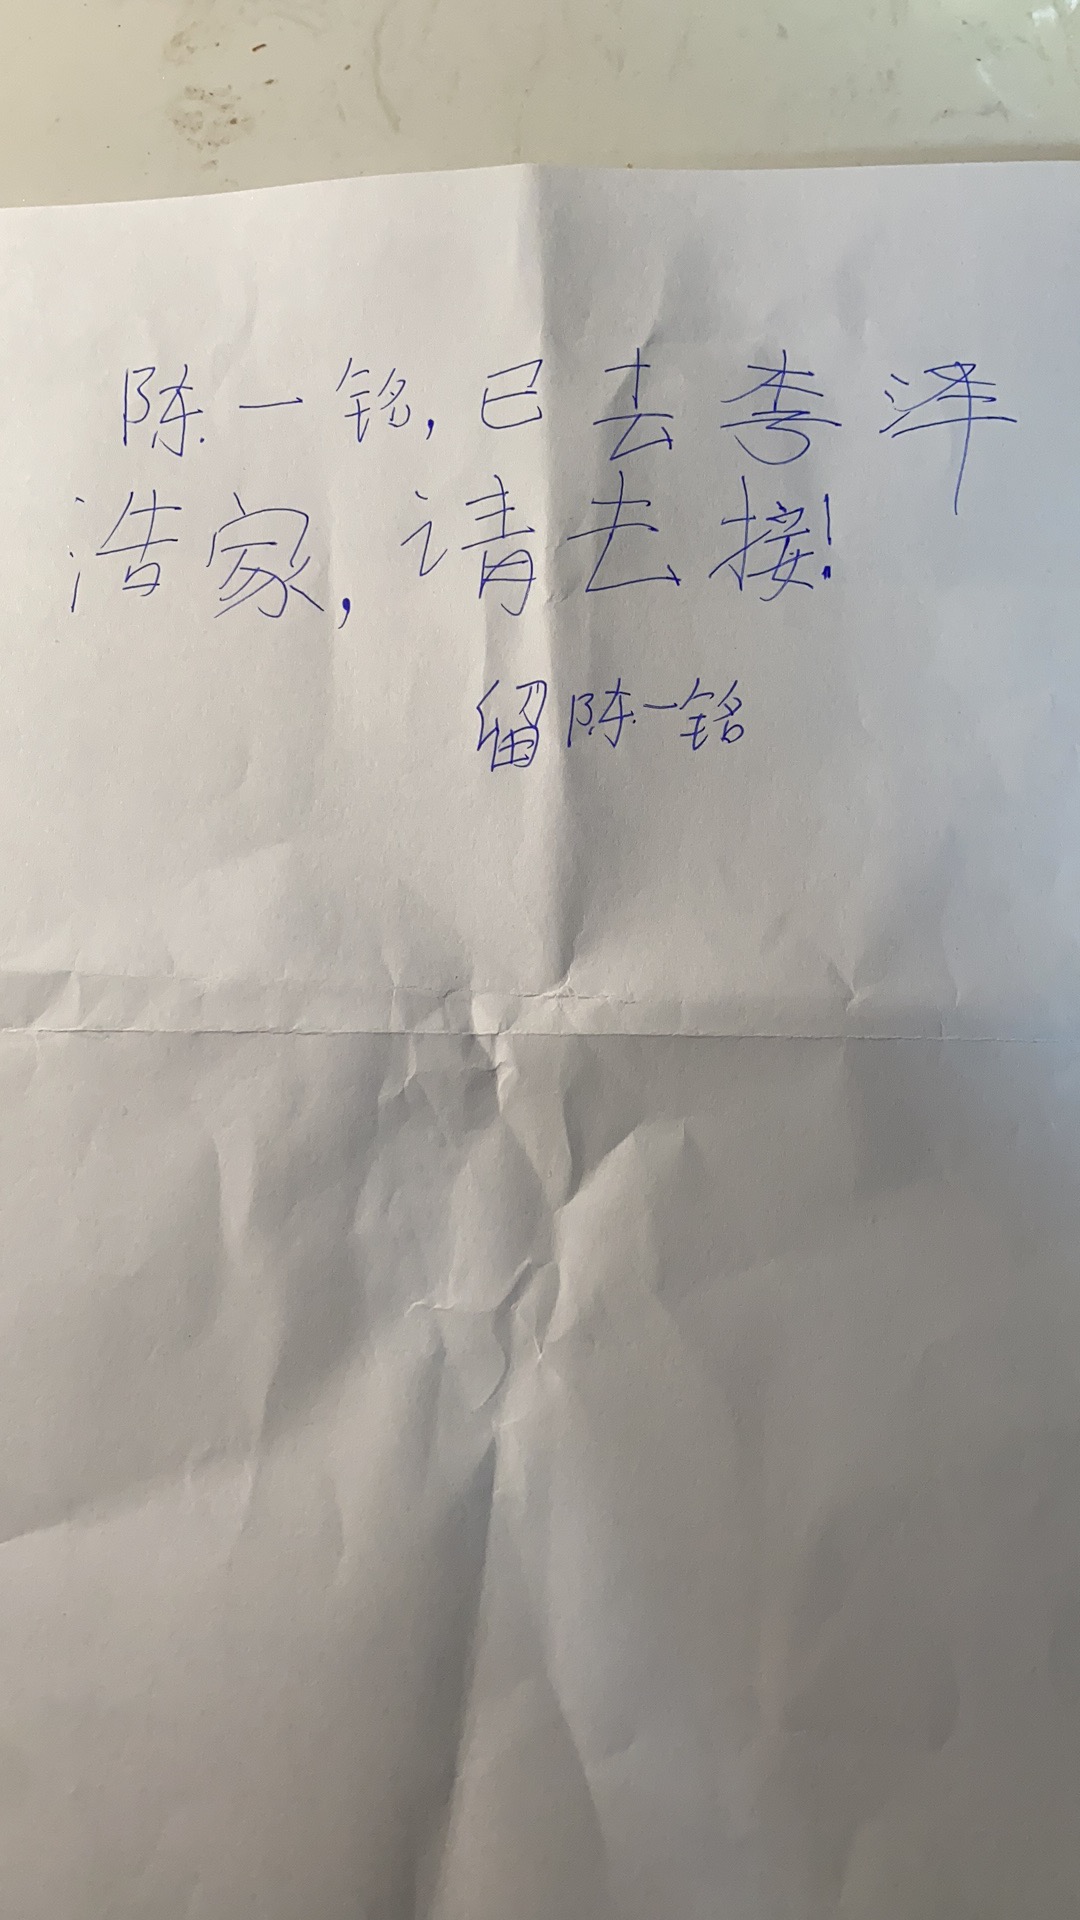 陈一铭,已去李泽
浩家,请去接!
留陈一铭